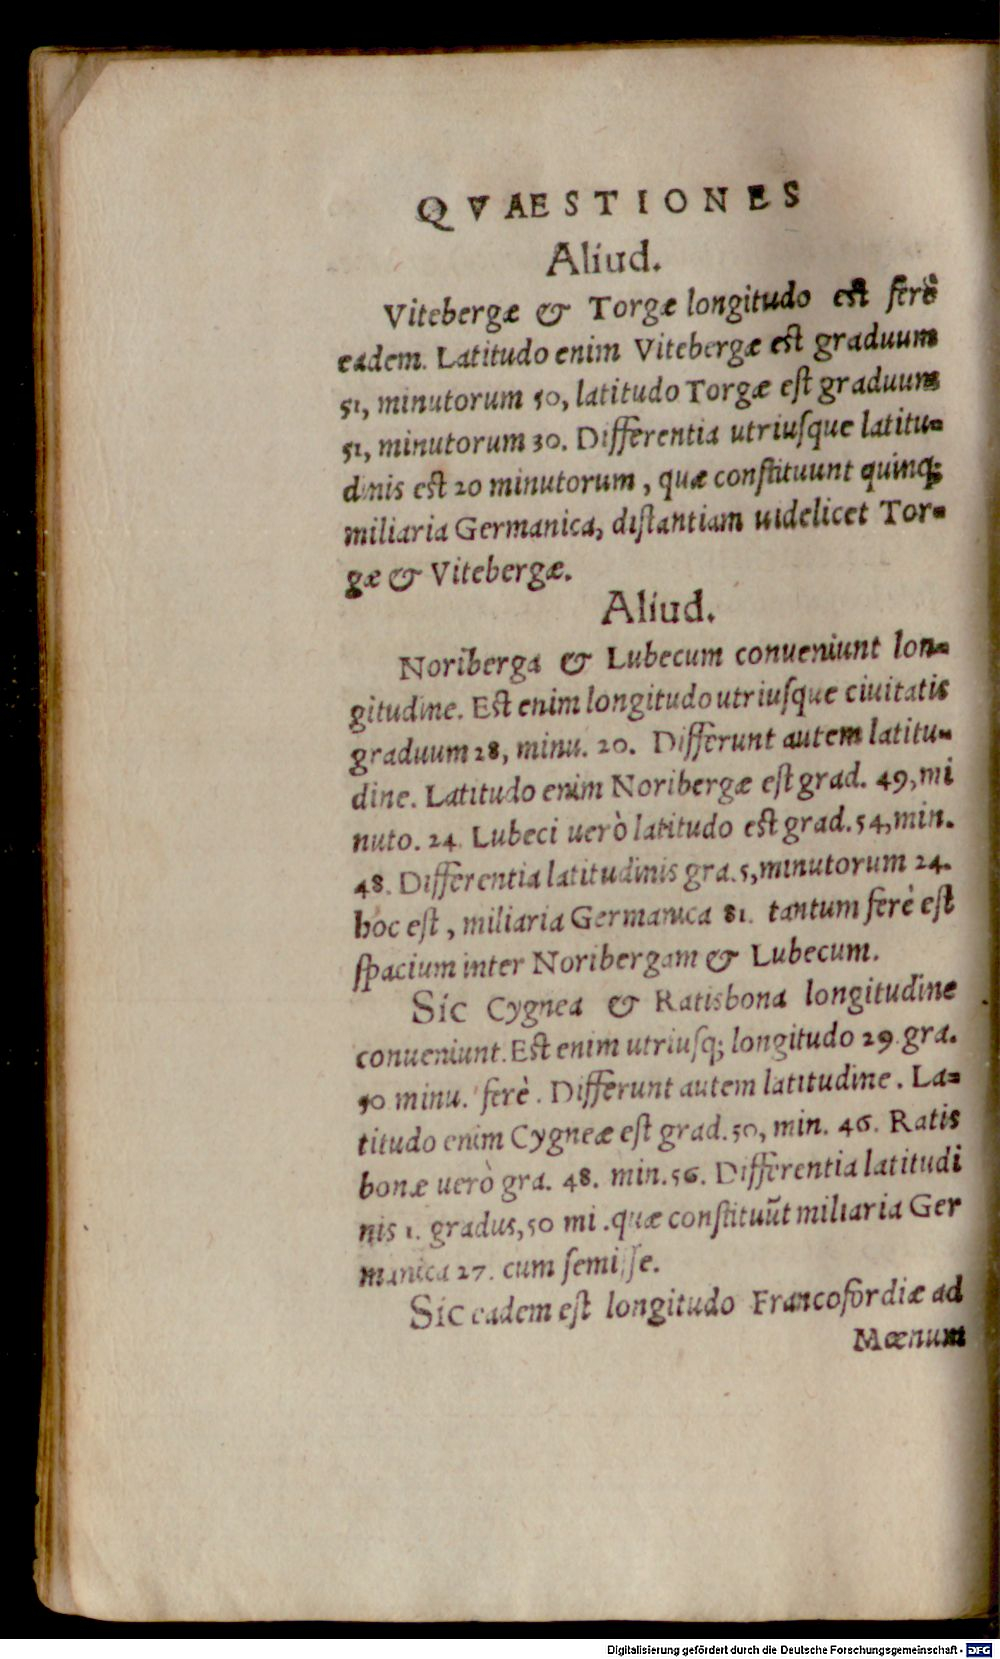 QVAESTIONES
Aliud.
Vitebergæ & Torgæ longitudo est ferè
eadem. Latitudo enim Vitebergæ est graduum
51, minutorum 50, latitudo Torgæ eſt graduum
51, minutorum 30. Differentia utriuſque latitu=
dinis est 20 minutorum, quæ conſtituunt quinq;
miliaria Germanica, diſtantiam uidelicet Tor=
gæ & Vitebergæ.
Aliud.
Noriberga & Lubecum conueniunt lon=
gitudine. Est enim longitudo utriuſque ciuitatis
graduum 28, minu. 20. Differunt autem latitu=
dine. Latitudo enim Noribergæ eſt grad. 49, mi
nuto. 24. Lubeci uerò latitudo est grad. 54, min.
48. Differentia latitudinis gra. 5, minutorum 24.
hoc eſt, miliaria Germanica 81. tantum ferè eſt
ſpacium inter Noribergam & Lubecum.
Sic Cygnea & Ratisbona longitudine
conueniunt. Est enim utriuſq; longitudo 29. gra.
50 minu. ferè. Differunt autem latitudine. La=
titudo enim Cygneæ eſt grad. 50, min. 46. Ratis
bonæ uerò gra. 48. min. 56. Differentia latitudi
nis 1. gradus, 50 mi. quæ conſtituũt miliaria Ger
manica 27. cum ſemiſſe.
Sic eadem eſt longitudo Francofordiæ ad
Mœnum
Digitalisierung gefördert durch die Deutsche Forschungsgemeinschaft - DFG